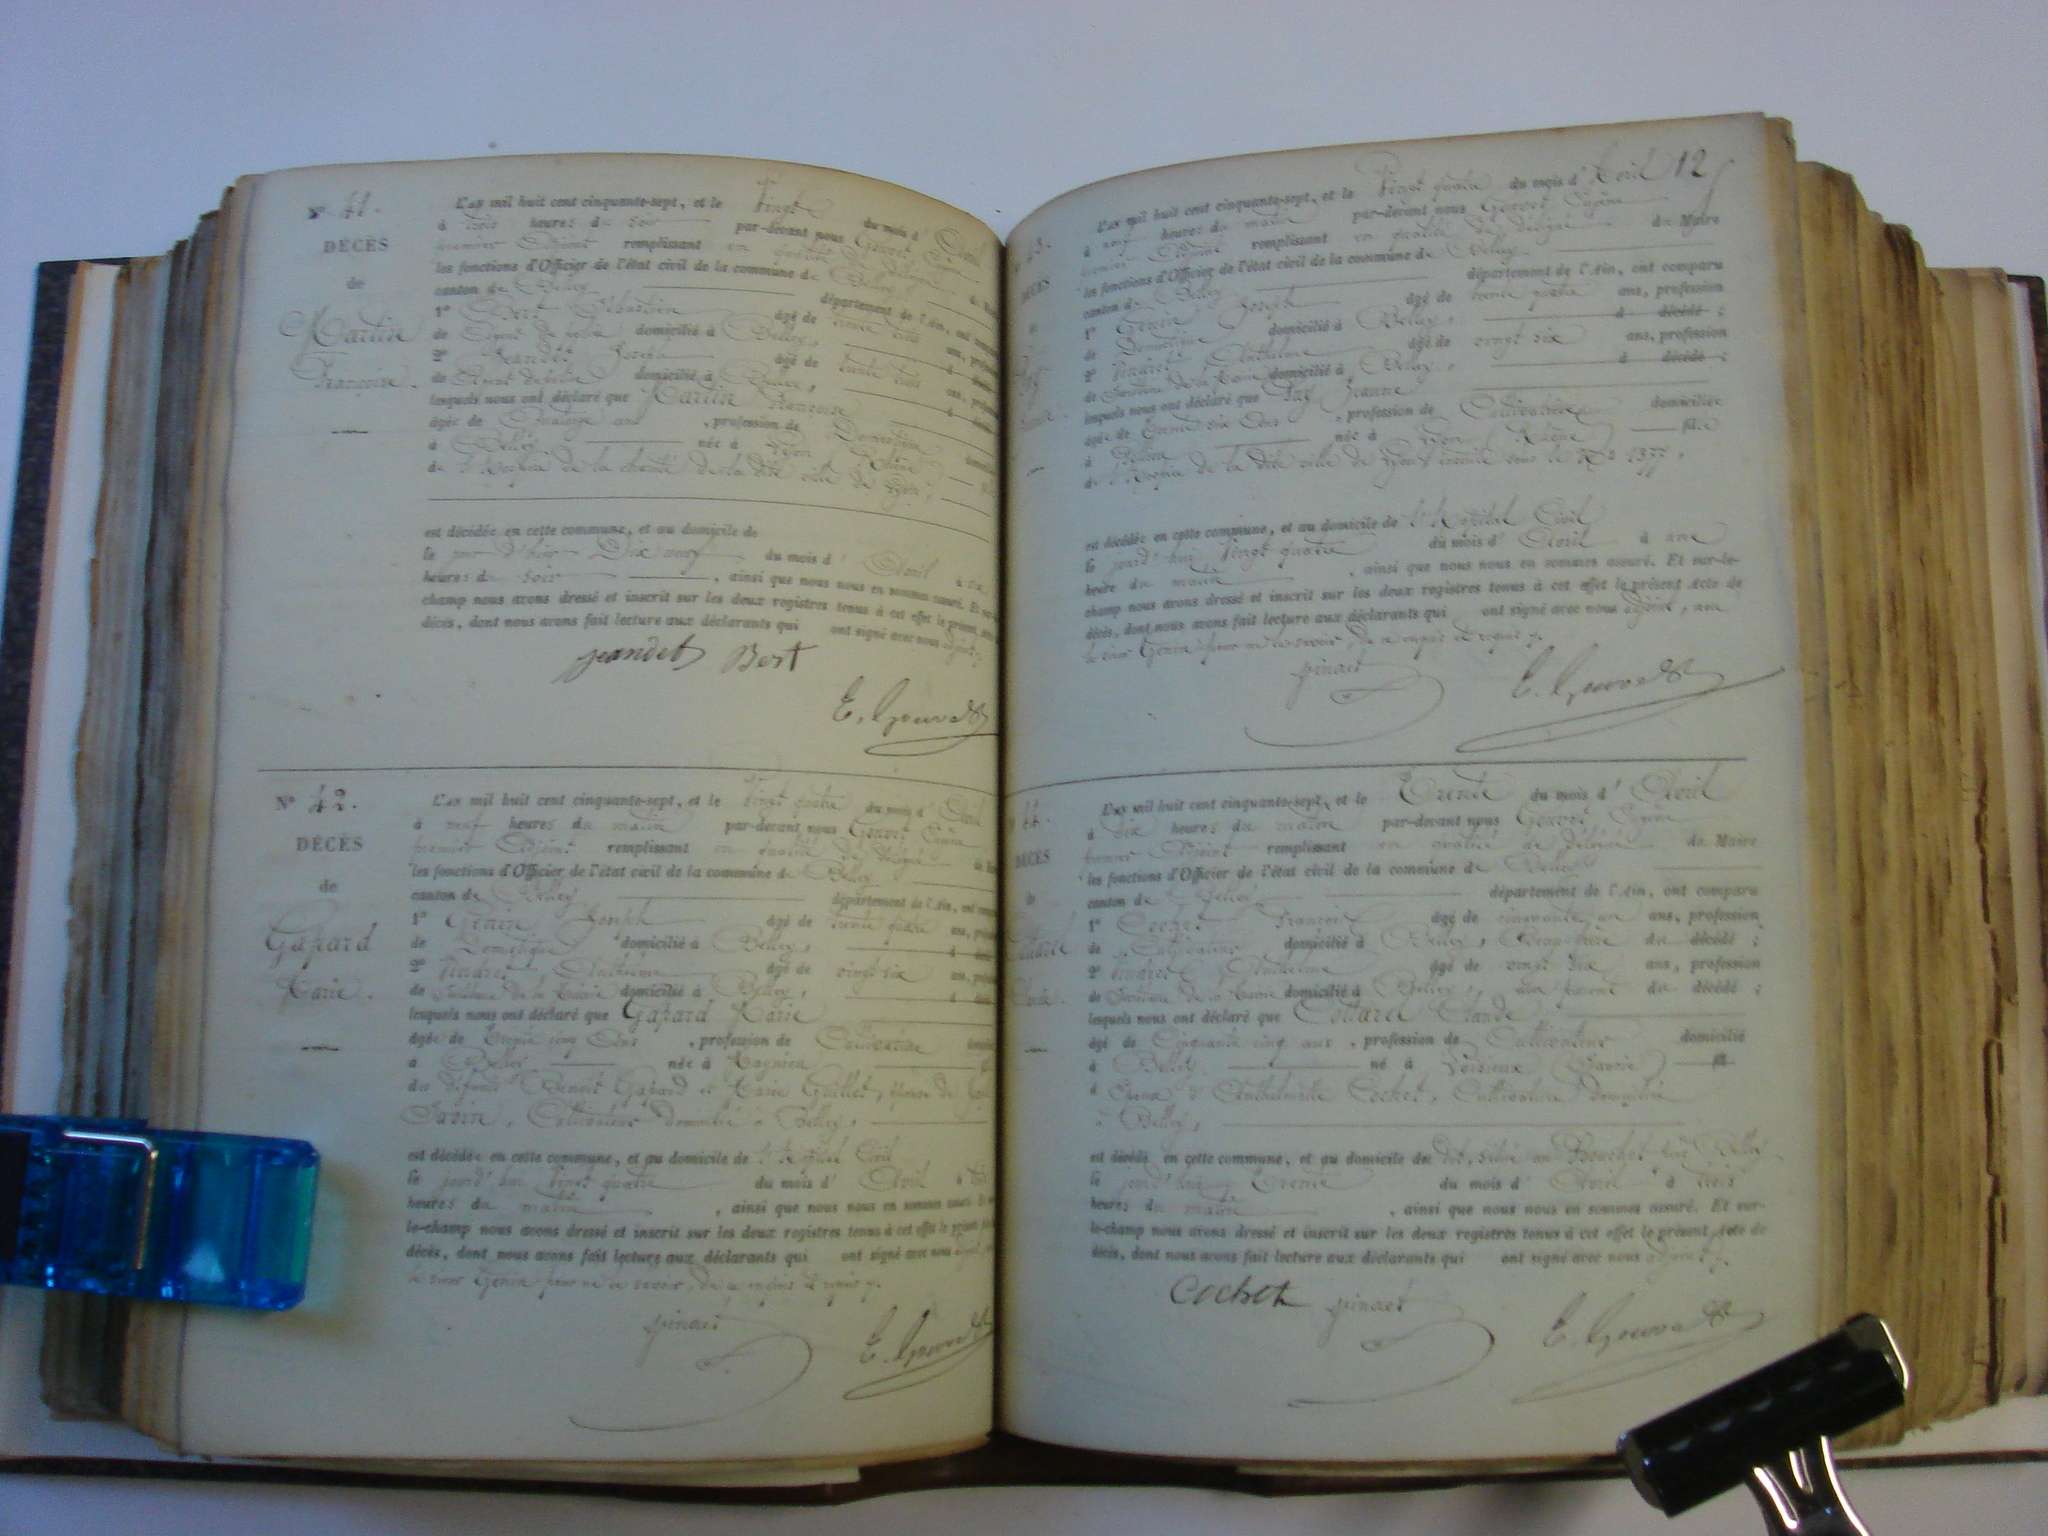 N° 41.
DÉCÈS
de
Martin
Françoise.
L'an mil huit cent cinquante-sept, et le Vingt du mois d' Avril
à trois heures du soir par-devant nous Gouvet,
premier Adjoint remplissant en qualité de
les fonctions d'Officier de l'état civil de la commune de Belley
canton de Belley département de l'Ain, ont comparu
1° Bert Sébastien âgé de trente trois ans,
de Agent de police domicilié à Belley,
2° Jeandet Joseph âgé de trente trois ans,
de Agent de police domicilié à Belley,
lesquels nous ont déclaré que Martin Françoise
âgée de Quatorze ans, profession de Domestique
à Belley née à Lyon Rhône
de l'hospice de la charité de la dite ville de Lyon,
est décédée en cette commune, et au domicile de
le jour d'hier Dix neuf du mois d' Avril à six
heures du soir, ainsi que nous nous en sommes assuré. Et
champ nous avons dressé et inscrit sur les deux registres tenus à cet effet le présent
décès, dont nous avons fait lecture aux déclarants qui ont signé avec nous adjoint
Jeandet Bert
E. Gouvet
N° 42.
DÉCÈS
de
Gapard
Marie.
L'an mil huit cent cinquante-sept, et le Vingt quatre du mois d' Avril
à neuf heures du matin par-devant nous Gouvet
premier Adjoint remplissant en qualité de Délégué
les fonctions d'Officier de l'état civil de la commune de Belley
canton de Belley département de l'Ain, ont comparu
1° Genin Joseph âgé de trente quatre ans,
de Domestique domicilié à Belley,
2° Pinaret Anthelme âgé de vingt six ans,
de Secrétaire de la Mairie domicilié à Belley,
lesquels nous ont déclaré que Gapard Marie
âgée de Trente cinq Ans, profession de Cultivatrice
à Belley née à Magnieu
des défunts Benoit Gapard et Marie Guillet, épouse de
Savin, Cultivateur domicilié à Belley,
est décédée en cette commune, et au domicile de l'Hôpital Civil
le jourd'hui Vingt quatre du mois d' Avril à
heures du matin, ainsi que nous nous en sommes assuré.
le-champ nous avons dressé et inscrit sur les deux registres tenus à cet effet le présent
décès, dont nous avons fait lecture aux déclarants qui ont signé avec nous adjoint,
le sieur Genin pour ne le savoir, de ce enquis et requis
pinaret
E. Gouvet
12
43.
DÉCÈS
L'an mil huit cent cinquante-sept, et le Vingt quatre du mois d' Avril
à neuf heures du matin par-devant nous Gouvet
premier Adjoint remplissant en qualité de Délégué du Maire
les fonctions d'Officier de l'état civil de la commune de Belley
canton de Belley département de l'Ain, ont comparu
1° Genin Joseph âgé de trente quatre ans, profession
de Domestique domicilié à Belley, à décédé ;
2° Pinaret Anthelme âgé de vingt six ans, profession
de Secrétaire de la Mairie domicilié à Belley, à décédé :
lesquels nous ont déclaré que Jeanne
âgée de Trente six Ans, profession de Cultivatrice domiciliée
à née à Lyon (Rhône) fille
de l'Hospice de la dite ville de Lyon inscrite sous le N° 1377.
est décédée en cette commune, et au domicile de l'Hôpital Civil
le jourd'hui Vingt quatre du mois d' Avril à une
heure du matin, ainsi que nous nous en sommes assuré. Et sur-le-
champ nous avons dressé et inscrit sur les deux registres tenus à cet effet le présent acte de
décès, dont nous avons fait lecture aux déclarants qui ont signé avec nous adjoint, non
le sieur Genin pour ne le savoir, de ce enquis et requis
pinaret
E. Gouvet
44.
DÉCÈS
de
L'an mil huit cent cinquante-sept, et le Trente du mois d' Avril
à Dix heures du matin par-devant nous Gouvet
premier Adjoint remplissant en qualité de Délégué du Maire
les fonctions d'Officier de l'état civil de la commune de Belley
canton de Belley département de l'Ain, ont comparu
1° Cochet François âgé de cinquante un ans, profession
de Cultivateur domicilié à Belley, Beau-frère du décédé ;
2° Pinaret Anthelme âgé de vingt six ans, profession
de Secrétaire de la Mairie domicilié à Belley, non parent du décédé ;
lesquels nous ont déclaré que Collaret Claude
âgé de Cinquante cinq ans, profession de Cultivateur domicilié
à Belley né à Loisieux (Savoie) fils
d' Époux d' Anthelmette Cochet, Cultivatrice domiciliée
à Belley,
est décédé en cette commune, et au domicile de
le jourd'hui Trente du mois d' Avril à trois
heures du matin, ainsi que nous nous en sommes assuré. Et sur-
le-champ nous avons dressé et inscrit sur les deux registres tenus à cet effet le présent acte de
décès, dont nous avons fait lecture aux déclarants qui ont signé avec nous adjoint
Cochet pinaret
E. Gouvet